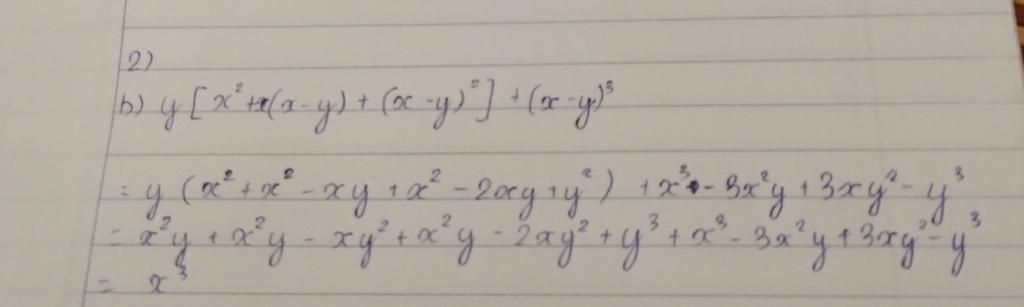 2)
b) y [x² + x(x - y) + (x - y)²] + (x - y)³
= y (x² + x² - xy + x² - 2xy + y²) + x³ - 3x²y + 3xy² - y³
= x²y + x²y - xy² + x²y - 2xy² + y³ + x³ - 3x²y + 3xy² - y³
= x³